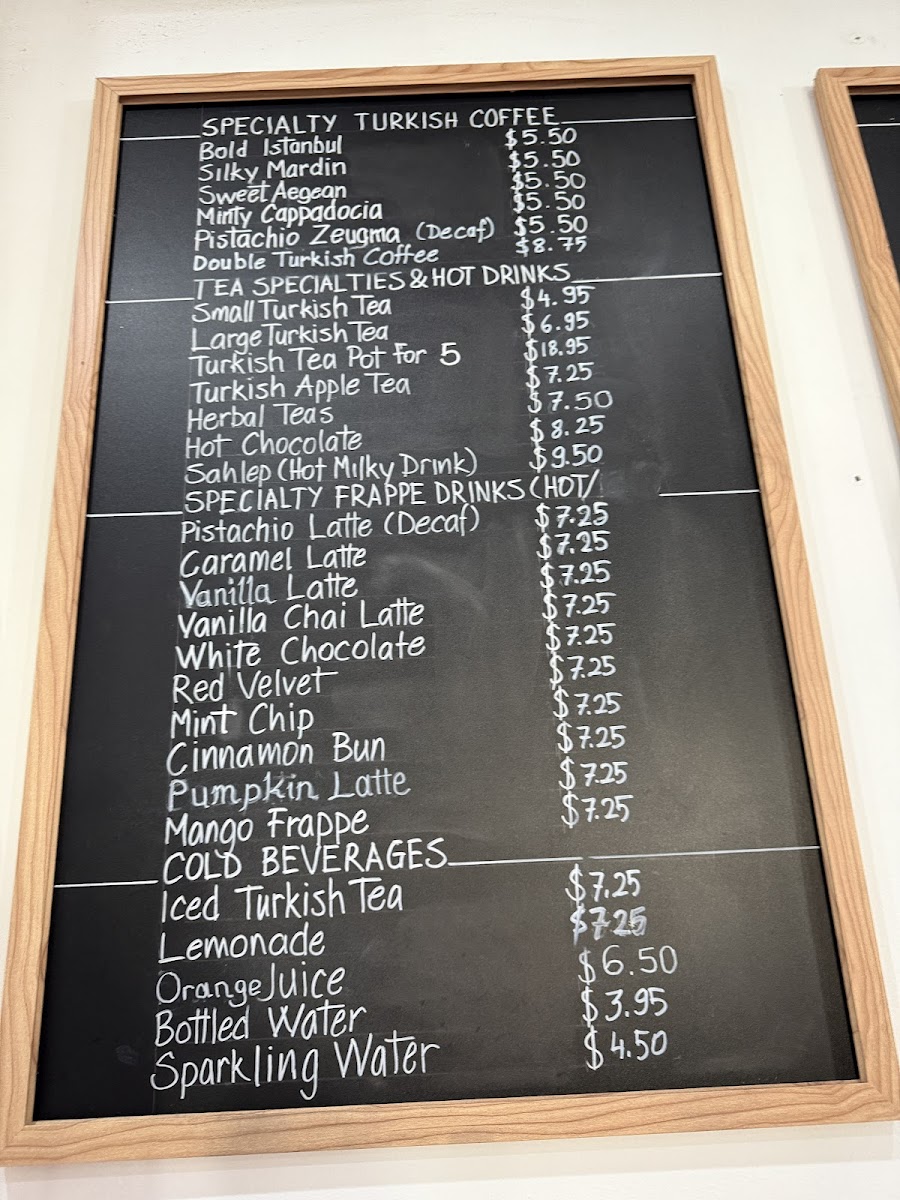 SPECIALTY TURKISH COFFEE
Bold Istanbul $5.50
Silky Mardin $5.50
Sweet Aegean $5.50
Minty Cappadocia $5.50
Pistachio Zeugma (Decaf) $5.50
Double Turkish Coffee $8.75
TEA SPECIALTIES & HOT DRINKS
Small Turkish Tea $4.95
Large Turkish Tea $6.95
Turkish Tea Pot for 5 $18.95
Turkish Apple Tea $7.25
Herbal Teas $7.50
Hot Chocolate $8.25
Sahlep (Hot Milky Drink) $9.50
SPECIALTY FRAPPE DRINKS (HOT/
Pistachio Latte (Decaf) $7.25
Caramel Latte $7.25
Vanilla Latte $7.25
Vanilla Chai Latte $7.25
White Chocolate $7.25
Red Velvet $7.25
Mint Chip $7.25
Cinnamon Bun $7.25
Pumpkin Latte $7.25
Mango Frappe $7.25
COLD BEVERAGES
Iced Turkish Tea $7.25
Lemonade $7.25
Orange Juice $6.50
Bottled Water $3.95
Sparkling Water $4.50